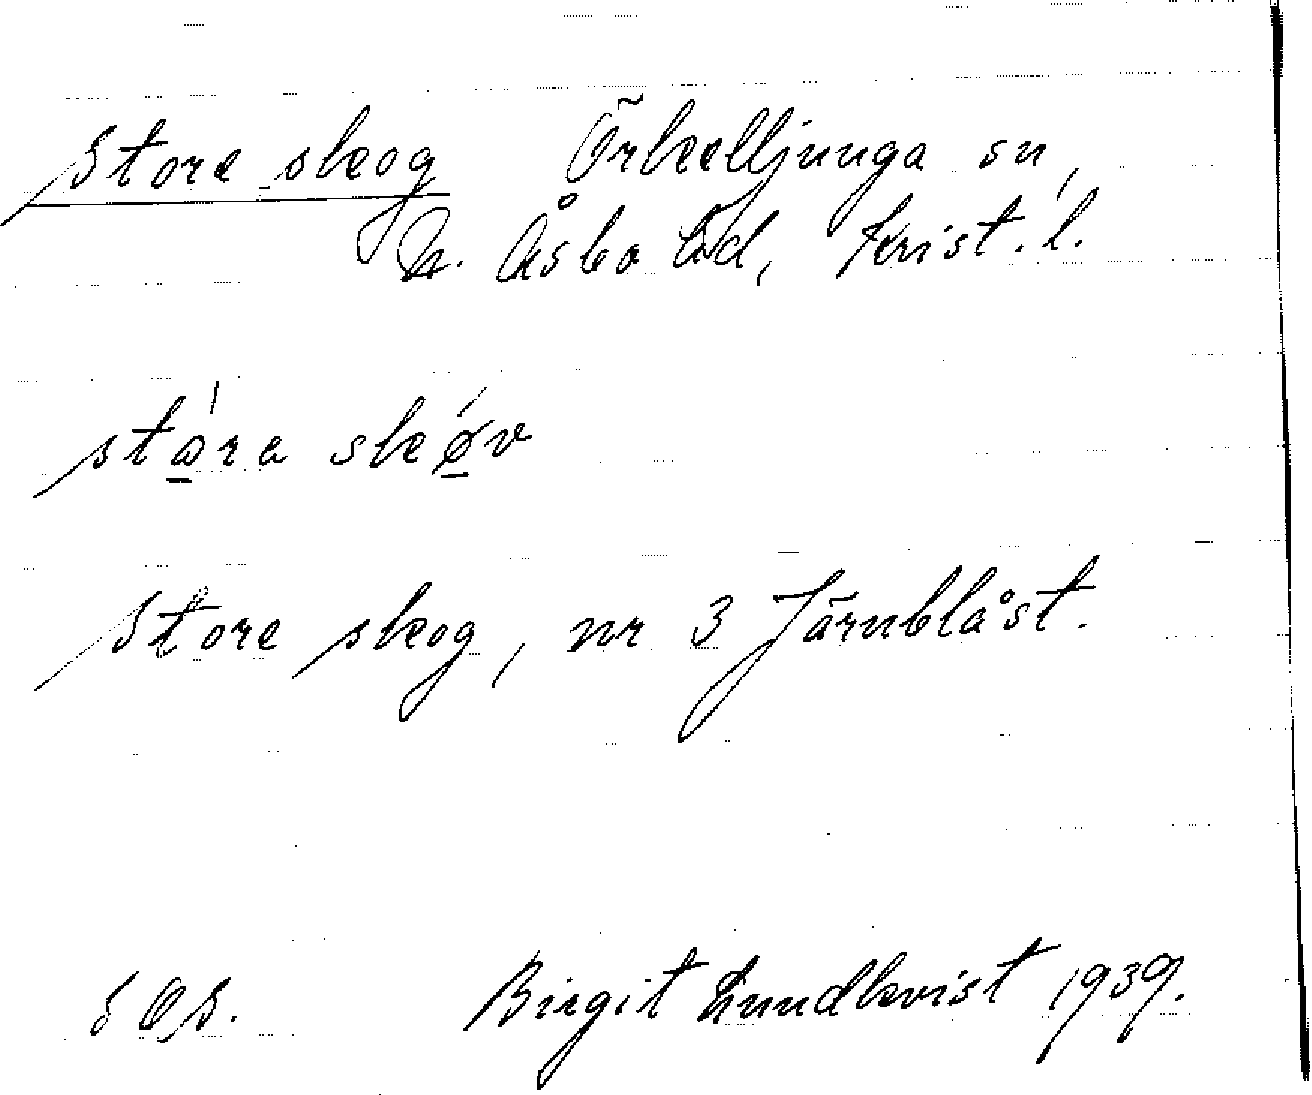 Store skog Örkelljunga sn,
N. Åsbo hd, Krist. l.
stora skøv
Store skog, nr 3 Järnblåst.
Birgit Lundkvist 1939.